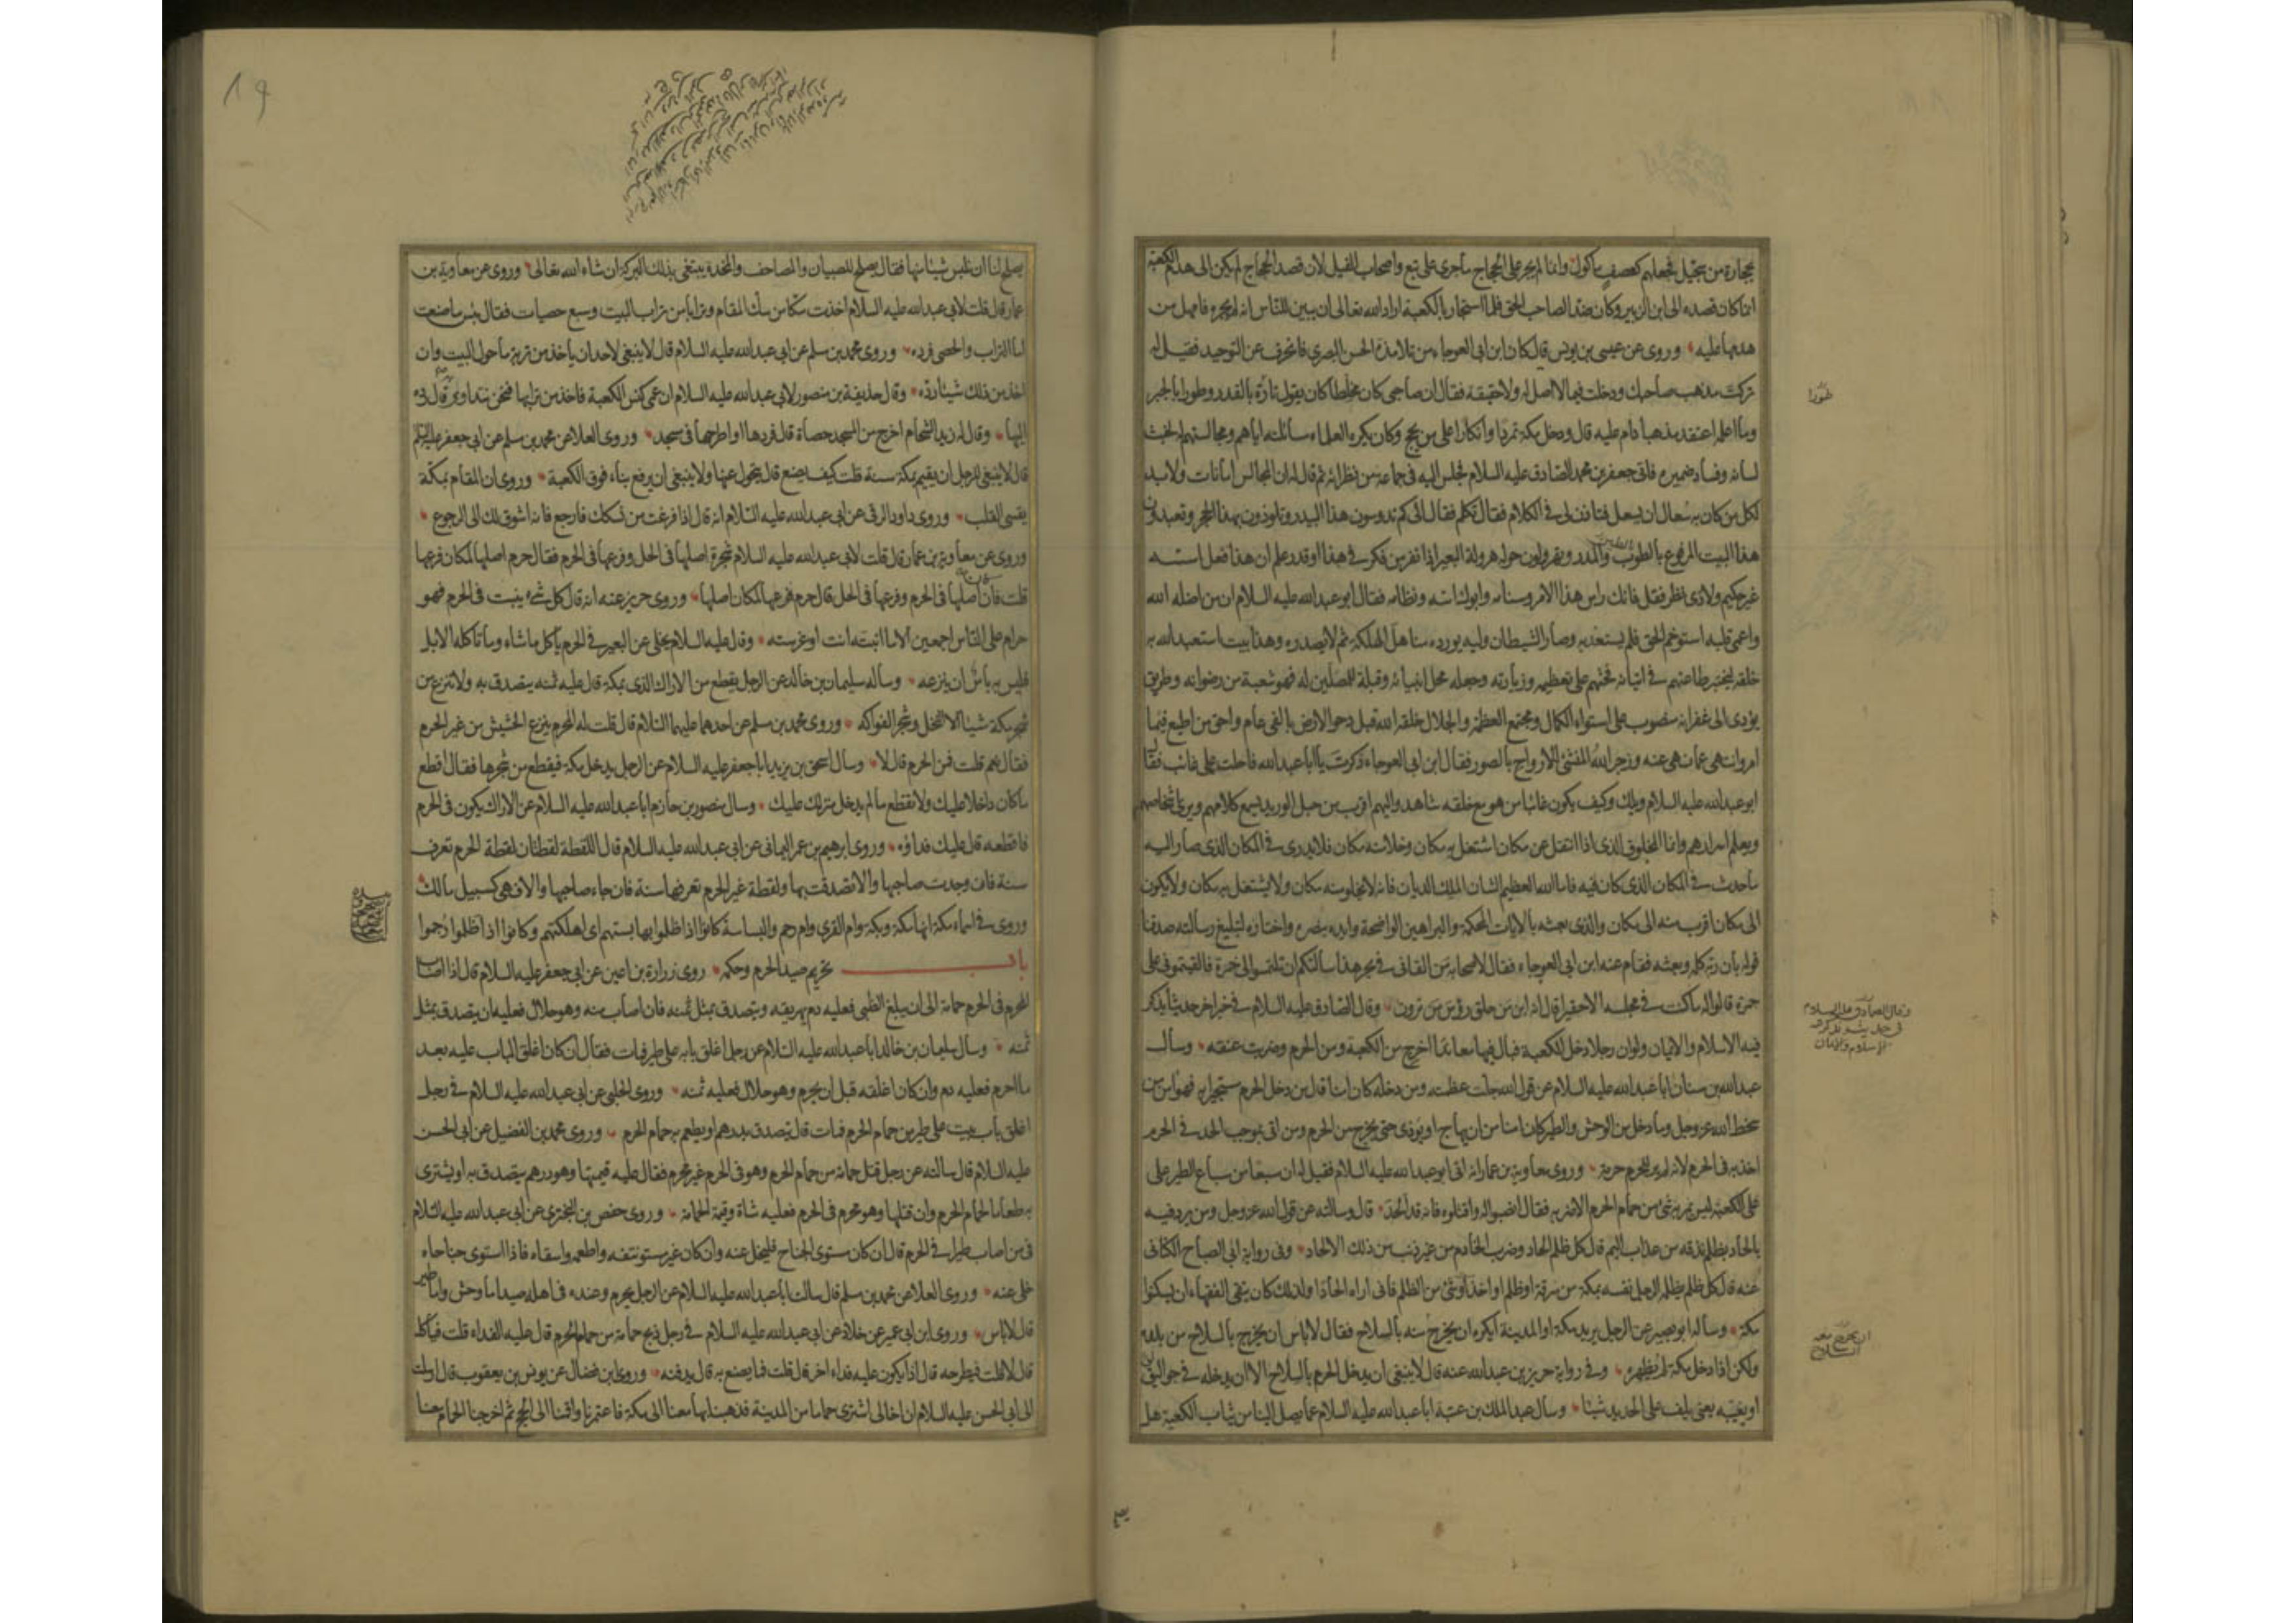 بحجارة من سجيل فجعلهم كعصف مأكول وانما لم يجر على الحجاج ما جرى على تبع واصحاب الفيل لان قصد الحجاج لم يكن الى هدم الكعبة
انما كان قصده الى ابن الزبير وكان ضدا لصاحب الحق فلما استجار بالكعبة اراد الله تعالى ان يبين للناس انه لم يجره فامهل من
هدمها عليه وروى عن عيسى بن يونس قال كان ابن ابى العوجاء من تلامذة الحسن البصري فانحرف عن التوحيد فقيل له
تركت مذهب صاحبك ودخلت فيما لا اصل له ولا حقيقة فقال ان صاحبى كان مخلطا كان يقول تارة بالقدر وطورا بالجبر
وما اعلم اعتقد مذهبا دام عليه قال ودخل مكة تمردا وانكارا على من يحج وكان يكره العلماء مسائلته اياهم ومجالسته لهم لخبث
لسانه وفساد ضميره فاتى جعفر بن محمد الصادق عليه السلام فجلس اليه فى جماعة من نظرائه ثم قال له ان المجالس امانات ولا بد
لكل من كان به سعال ان يسعل فتاذن لى فى الكلام فقال تكلم فقال الى كم تدوسون هذا البيدر وتلوذون بهذا الحجر وتعبدون
هذا البيت المرفوع بالطوب والمدر وتهرولون حوله هرولة البعير اذا نفر من فكر فى هذا او قدر علم ان هذا فعل اسسه
غير حكيم ولا ذى نظر فقل فانك راس هذا الامر وسنامه وابوك اسه ونظامه فقال ابو عبد الله عليه السلام ان من اضله الله
واعمى قلبه استوخم الحق فلم يستعذبه وصار الشيطان وليه يورده مناهل الهلكة ثم لا يصدره وهذا بيت استعبد الله به
خلقه ليختبر طاعتهم فى اتيانه فحثهم على تعظيمه وزيارته وجعله محل انبيائه وقبلة للمصلين له فهو شعبة من رضوانه وطريق
يؤدى الى غفرانه منصوب على استواء الكمال ومجتمع العظمة والجلال خلقه الله قبل دحو الارض بالفى عام واحق من اطيع فيما
امر وانتهى عما نهى عنه وزجر الله المنشئ للارواح بالصور فقال ابن ابى العوجاء ذكرت يا ابا عبد الله فاحلت على غائب فقال
ابو عبد الله عليه السلام ويلك وكيف يكون غائبا من هو مع خلقه شاهد واليهم اقرب من حبل الوريد يسمع كلامهم ويرى اشخاصهم
ويعلم اسرارهم وانما المخلوق الذى اذا انتقل عن مكان اشتغل به مكان وخلا منه مكان فلا يدرى فى المكان الذى صار اليه
ما حدث فى المكان الذى كان فيه فاما الله العظيم الشان الملك الديان فانه لا يخلو منه مكان ولا يشتغل به مكان ولا يكون
الى مكان اقرب منه الى مكان والذى بعثه بالايات المحكمة والبراهين الواضحة وايده بنصره واختاره لتبليغ رسالته صدقنا
قوله بان ربه كلمه وبعثه فقام عنه ابن ابى العوجاء فقال لاصحابه من القانى فى بحر هذا سالتكم ان تلتمسوا لى خمرة فالقيتمونى على
جمرة قالوا له ما كنت فى مجلسه الا حقيرا قال انه ابن من حلق رؤس من ترون وقال الصادق عليه السلام فى خبر اخر حديثا يذكر
فيه الاسلام والايمان ولو ان رجلا دخل الكعبة فبال فيها معاندا اخرج من الكعبة ومن الحرم وضربت عنقه وسأل
عبد الله بن سنان ابا عبد الله عليه السلام عن قول الله جلت عظمته ومن دخله كان امنا قال من دخل الحرم مستجيرا به فهو امن من
سخط الله عز وجل وما دخل من الوحش والطير كان امنا من ان يهاج او يؤذى حتى يخرج من الحرم ومن اتى بموجب الحد فى الحرم
اخذ به فى الحرم لانه لم ير للحرم حرمة وروى معاوية بن عمار انه اتى ابو عبد الله عليه السلام فقيل له ان سبعا من سباع الطير على
على الكعبة ليس يمر به شئ من حمام الحرم الا ضربه فقال انصبوا له واقتلوه فانه قد الحد قال وسالته عن قول الله عز وجل ومن يرد فيه
بالحاد بظلم نذقه من عذاب اليم قال كل ظلم الحاد وضرب الخادم من غير ذنب من ذلك الالحاد وفى رواية ابى الصباح الكنانى
عنه قال كل ظلم يظلمه الرجل نفسه بمكة من سرقة او ظلم احد او شئ من الظلم فانى اراه الحادا ولذلك كان يتقى الفقهاء ان يسكنوا
مكة وسأله ابو بصير عن الرجل يريد مكة او المدينة ايكره ان يخرج منه بالسلاح فقال لا باس ان يخرج بالسلاح من بلده
ولكن اذا دخل مكة لم يظهره وفى رواية حريز بن عبد الله عنه قال لا ينبغى ان يدخل الحرم بالسلاح الا ان يدخله فى جوالق
او يغيبه يعنى يلف على الحديد شيئا وسأل عبد الملك بن عتبة ابا عبد الله عليه السلام عما يصل الينا من ثياب الكعبة هل
طورا
وقال الصادق عليه السلام
فى حديث يذكر فيه
الاسلام والايمان
ان يخرج معه
السلاح
يصلح
19
يصلح لنا ان نلبس شيئا منها فقال يصلح للصبيان والمصاحف والمخدة يبتغى بذلك البركة ان شاء الله تعالى وروى عن معاوية بن
عمار قال قلت لابى عبد الله عليه السلام اخذت سكا من سك المقام وترابا من تراب البيت وسبع حصيات فقال بئس ما صنعت
اما التراب والحصى فرده وروى محمد بن مسلم عن ابى عبد الله عليه السلام قال لا ينبغى لاحد ان ياخذ من تربة ما حول البيت وان
اخذ من ذلك شيئا رده وقال حذيفة بن منصور لابى عبد الله عليه السلام ان عمى كنس الكعبة فاخذ من ترابها فنحن نتداوى به قال رده
اليها وقال له زيد الشحام اخرج من المسجد حصاة قال فردها او اطرحها فى مسجد وروى العلا عن محمد بن مسلم عن ابى جعفر عليه السلام
قال لا ينبغى للرجل ان يقيم بمكة سنة قلت كيف يصنع قال يتحول عنها ولا ينبغى ان يرفع بناء فوق الكعبة وروى ان المقام بمكة
يقسى القلب وروى داود الرقى عن ابى عبد الله عليه السلام انه قال اذا فرغت من نسكك فارجع فانه اشوق لك الى الرجوع
وروى عن معاوية بن عمار قال قلت لابى عبد الله عليه السلام شجرة اصلها فى الحل وفرعها فى الحرم فقال حرم اصلها لمكان فرعها
قلت فان اصلها فى الحرم وفرعها فى الحل قال حرم فرعها لمكان اصلها وروى حريز عنه انه قال كل شئ ينبت فى الحرم فهو
حرام على الناس اجمعين الا ما انبته انت او غرسته وقال عليه السلام يخلى عن البعير فى الحرم ياكل ما شاء وما تاكله الابل
فليس به بأس ان ينزعه وسأله سليمان بن خالد عن الرجل يقطع من الاراك الذى بمكة قال عليه ثمنه يتصدق به ولا تنزع من
شجر مكة شيئا الا النخل وشجر الفواكه وروى محمد بن مسلم عن احدهما عليهما السلام قال قلت له المحرم ينزع الحشيش من غير الحرم
فقال نعم قلت فمن الحرم قال لا وسأل اسحق بن يزيد ابا جعفر عليه السلام عن الرجل يدخل مكة فيقطع من شجرها فقال اقطع
ما كان داخلا عليك ولا تقطع ما لم يدخل منزلك عليك وسأل منصور بن حازم ابا عبد الله عليه السلام عن الاراك يكون فى الحرم
فاقطعه قال عليك فداؤه وروى ابرهيم بن عمر اليمانى عن ابى عبد الله عليه السلام قال اللقطة لقطتان لقطة الحرم تعرف
سنة فان وجدت صاحبها والا تصدقت بها ولقطة غير الحرم تعرفها سنة فان جاء صاحبها والا فهى كسبيل مالك
وروى فى اسماء مكة انها مكة وبكة وام القرى وام رحم والبساسة كانوا اذا ظلموا بها بستهم اى اهلكتهم وكانوا اذا ظلموا رحموا
باب تحريم صيد الحرم وحكمه روى زرارة بن اعين عن ابى جعفر عليه السلام قال اذا اصاب
المحرم فى الحرم حمامة الى ان يبلغ الظبى فعليه دم يهريقه ويتصدق بمثل ثمنه فان اصاب منه وهو حلال فعليه ان يتصدق بمثل
ثمنه وسأل سليمان بن خالد ابا عبد الله عليه السلام عن رجل اغلق بابه على طير فمات فقال ان كان اغلق الباب عليه بعد
ما احرم فعليه دم وان كان اغلقه قبل ان يحرم وهو حلال فعليه ثمنه وروى الحلبى عن ابى عبد الله عليه السلام فى رجل
اغلق باب بيت على طير من حمام الحرم فمات قال يتصدق بدرهم او يطعم به حمام الحرم وروى محمد بن الفضيل عن ابى الحسن
عليه السلام قال سالته عن رجل قتل حمامة من حمام الحرم وهو فى الحرم غير محرم فقال عليه قيمتها وهو درهم يتصدق به او يشترى
به طعاما لحمام الحرم وان قتلها وهو محرم فى الحرم فعليه شاة وقيمة الحمامة وروى حفص بن البخترى عن ابى عبد الله عليه السلام
فى من اصاب طيرا فى الحرم قال ان كان مستوى الجناح فليخل عنه وان كان غير مستو نتفه واطعمه واسقاه فاذا استوى جناحاه
خلى عنه وروى العلا عن محمد بن مسلم قال سالت ابا عبد الله عليه السلام عن الرجل يحرم وعنده فى اهله صيد اما وحش واما طير
قال لا باس وروى ابن ابى عمير عن خلاد عن ابى عبد الله عليه السلام فى رجل ذبح حمامة من حمام الحرم قال عليه الفداء قلت فياكله
قال لا قلت فيطرحه قال اذا يكون عليه فداء اخر قال قلت فما يصنع به قال يدفنه وروى ابن فضال عن يونس بن يعقوب قال ارسلت
الى ابى الحسن عليه السلام ان اخا لى اشترى حماما من المدينة فذهبنا بها معنا الى مكة فاعتمرنا واقمنا الى الحج ثم اخرجنا الحمام معنا